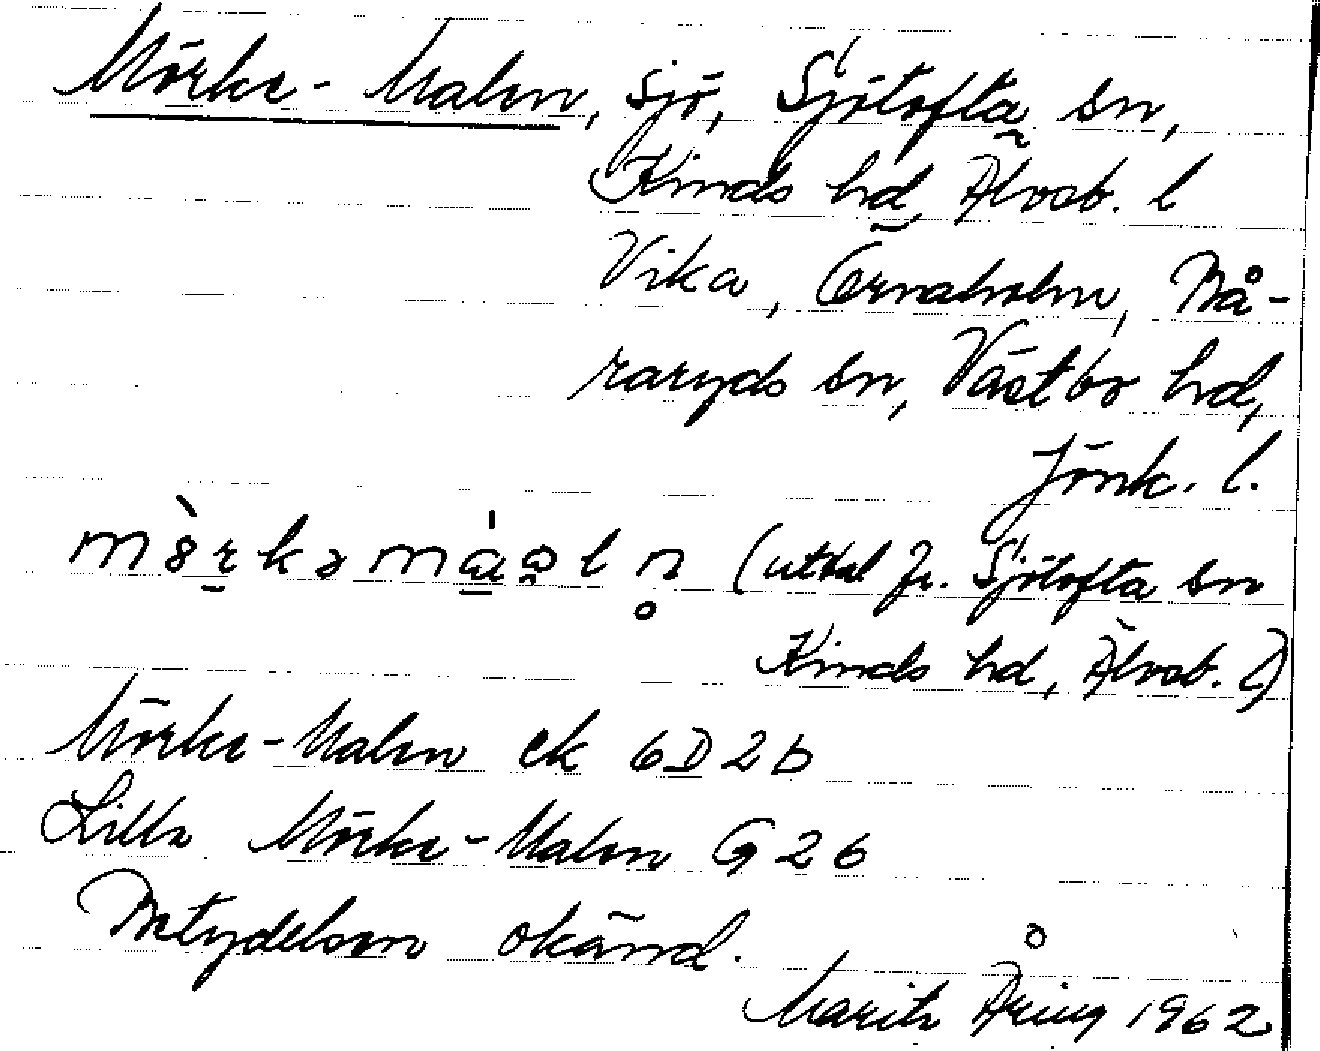 Mörke-Malen, sjö, Sjötofta sn,
Kinds hd, Älvsb. l
Vika, Örnaholm, Bå-
raryds sn, Västbo hd,
Jönk. l.
(uttal fr. Sjötofta sn
Kinds hd, Älvsb. l)
Mörke-Malen ek 6D2b
Lilla Mörke-Malen G26
Betydelsen okänd.
Marita Åring 1962